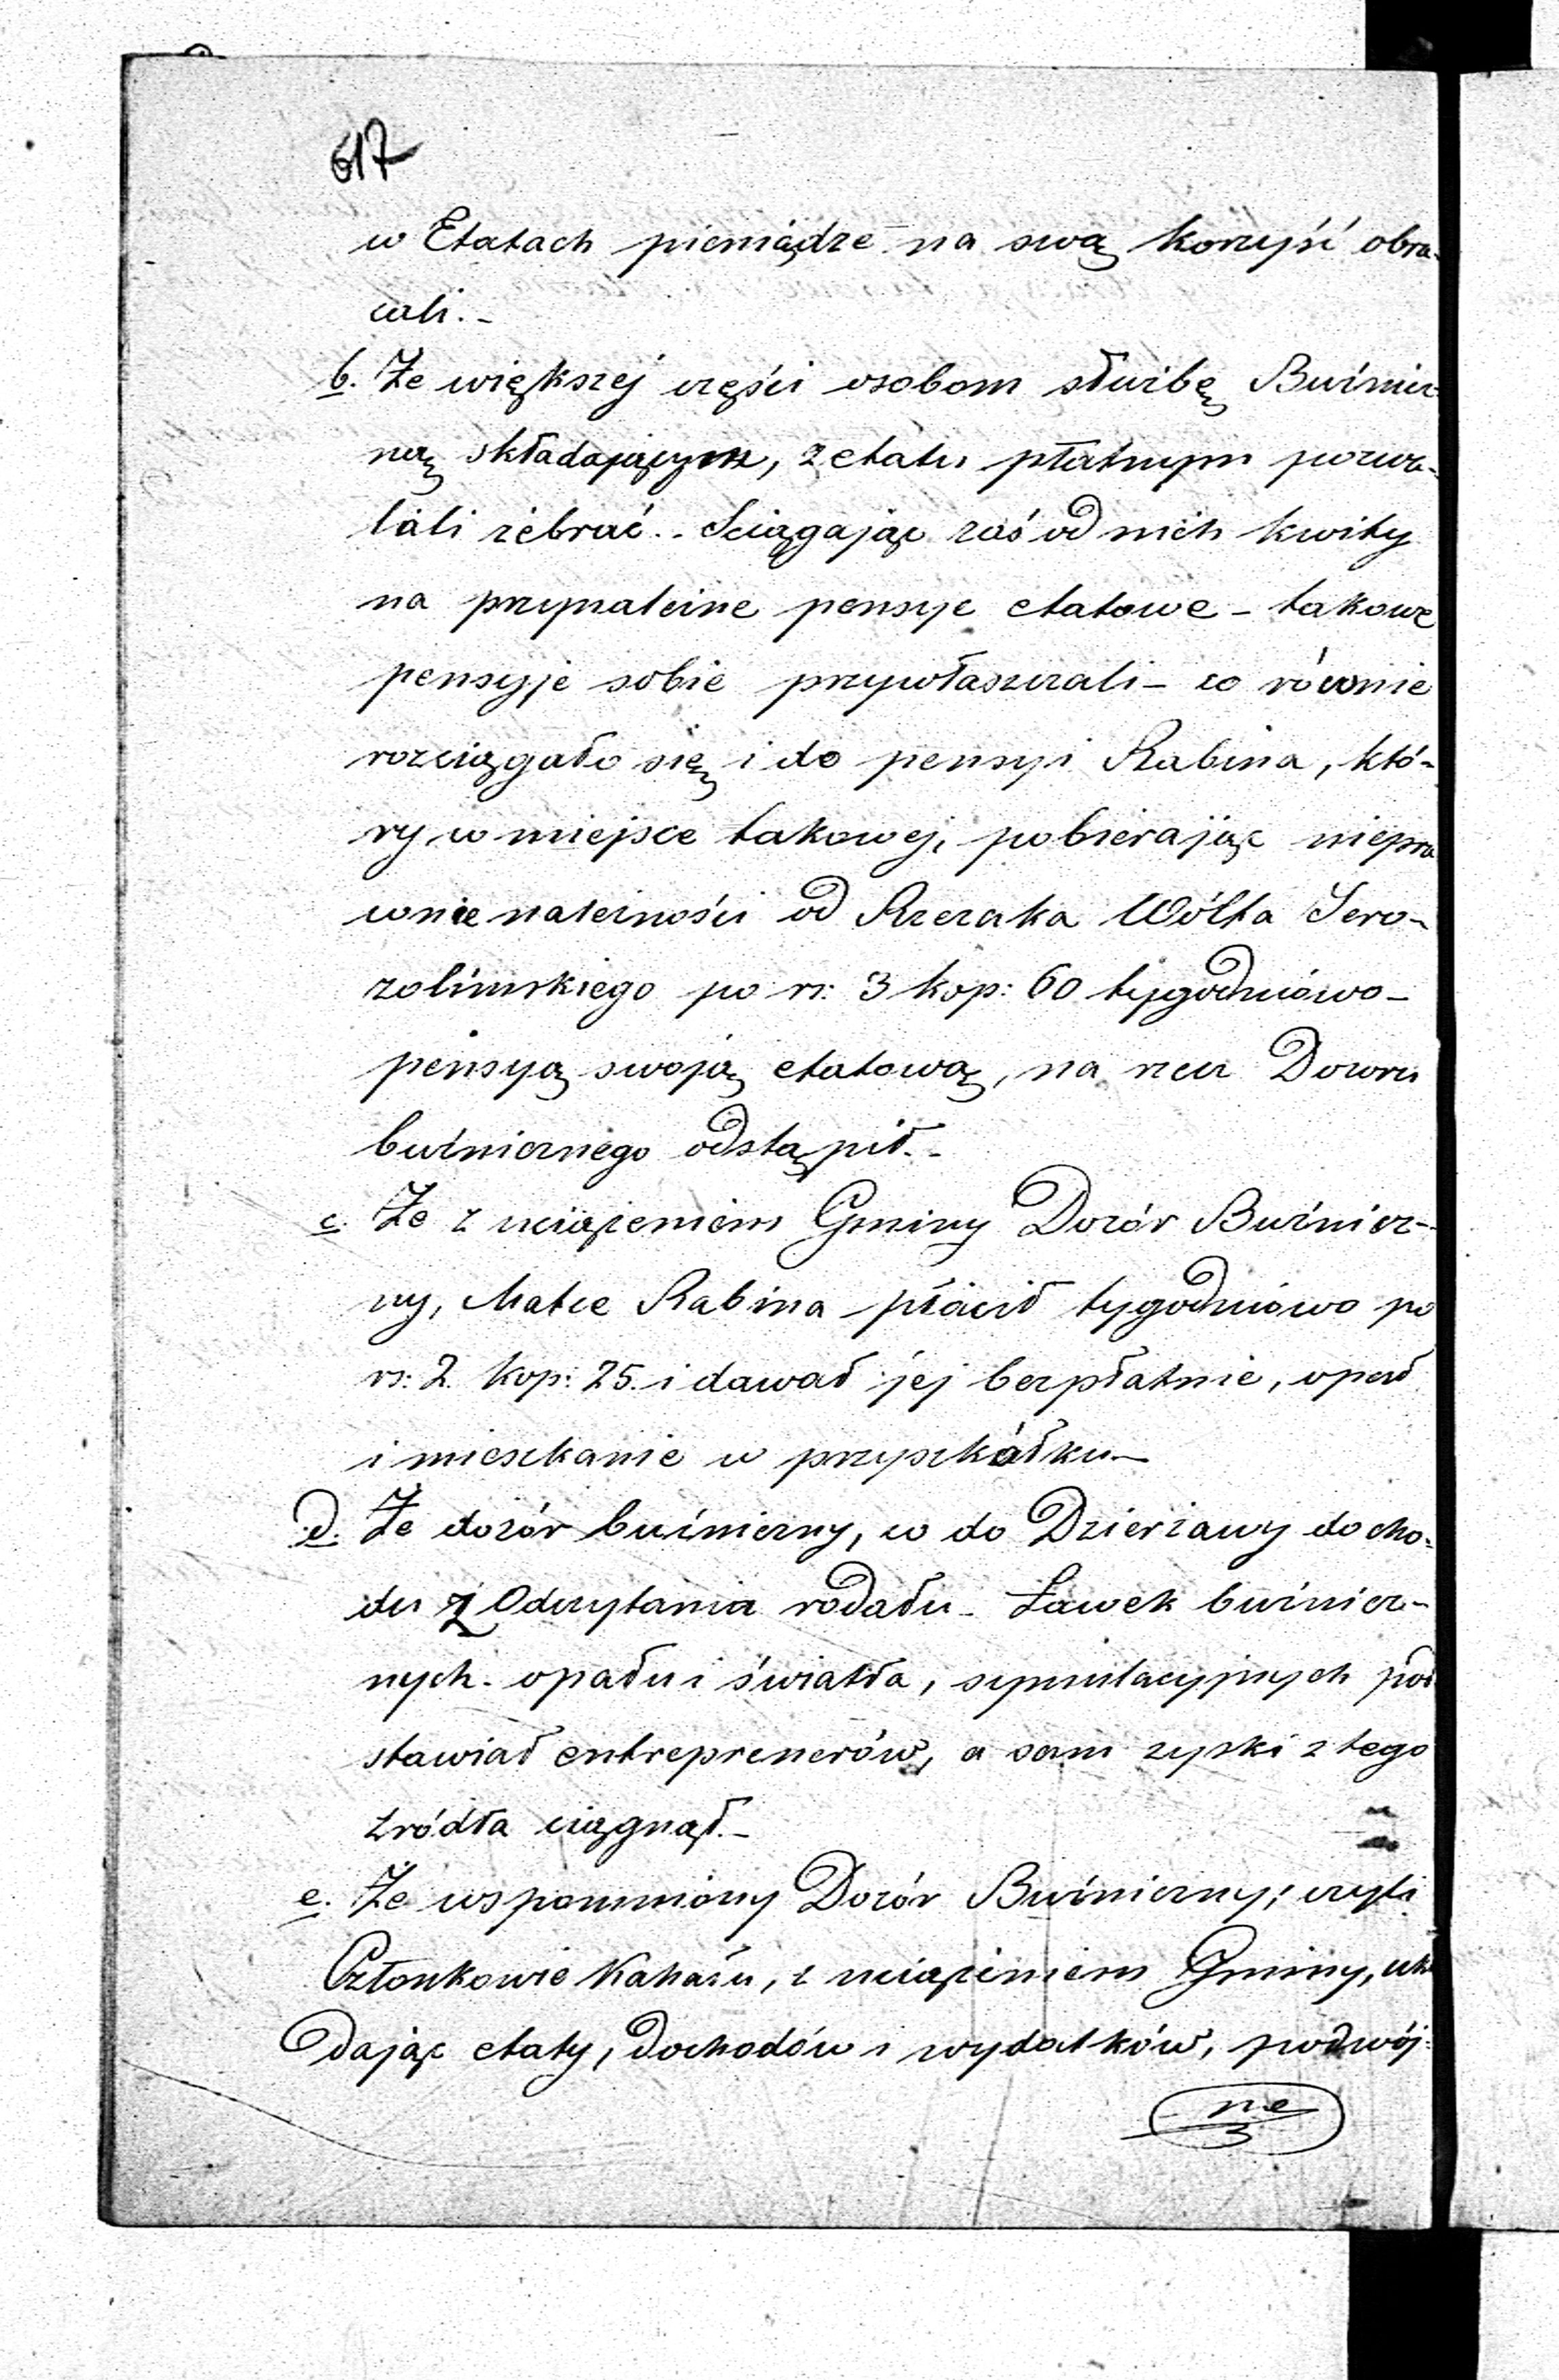 617
w Etatach pieniądze na swą korzyść obra-
cali. -
b. Że większej części osobom służbę Bużnicz-
ną składającym, z etatu płatnym pozwa-
lali żebrać. - Sciągając zaś od nich kwity
na przynależne pensye etatowe - takowe
pensyje sobie przywłaszczali - co równie
rozciągało się i do pensyi Rabina, któ-
ry w miejsce takowej, pobierając niepra
wnie należności od Rzezaka Wólfa Jero-
zolimskiego po rs: 3 kop: 60 tygodniowo -
pensyą swoją etatową, na rzecz Dozoru
bużnicznego odstąpił. -
c. Że z uciążeniem Gminy Dozór Bużnicz-
ny, Matce Rabina płacił tygodniowo po
rs: 2. kop: 25. i dawał jej bezpłatnie, opał
i mieszkanie w przyszkółku -
d. Że dozór bużniczny, co do Dzierżawy docho-
du z Odczytania rodału - Ławek bużnicz-
nych - opału i światła, symulacyjnych pod
stawiał entreprenerów, a sam zyski z tego
źródła ciągnął. -
e. Że wspomniony Dozór Bużniczny; czyli
Członkowie Kahału, z uciążeniem Gminy, ukła
dając etaty, dochodów i wydatków, podwój-
ne
3